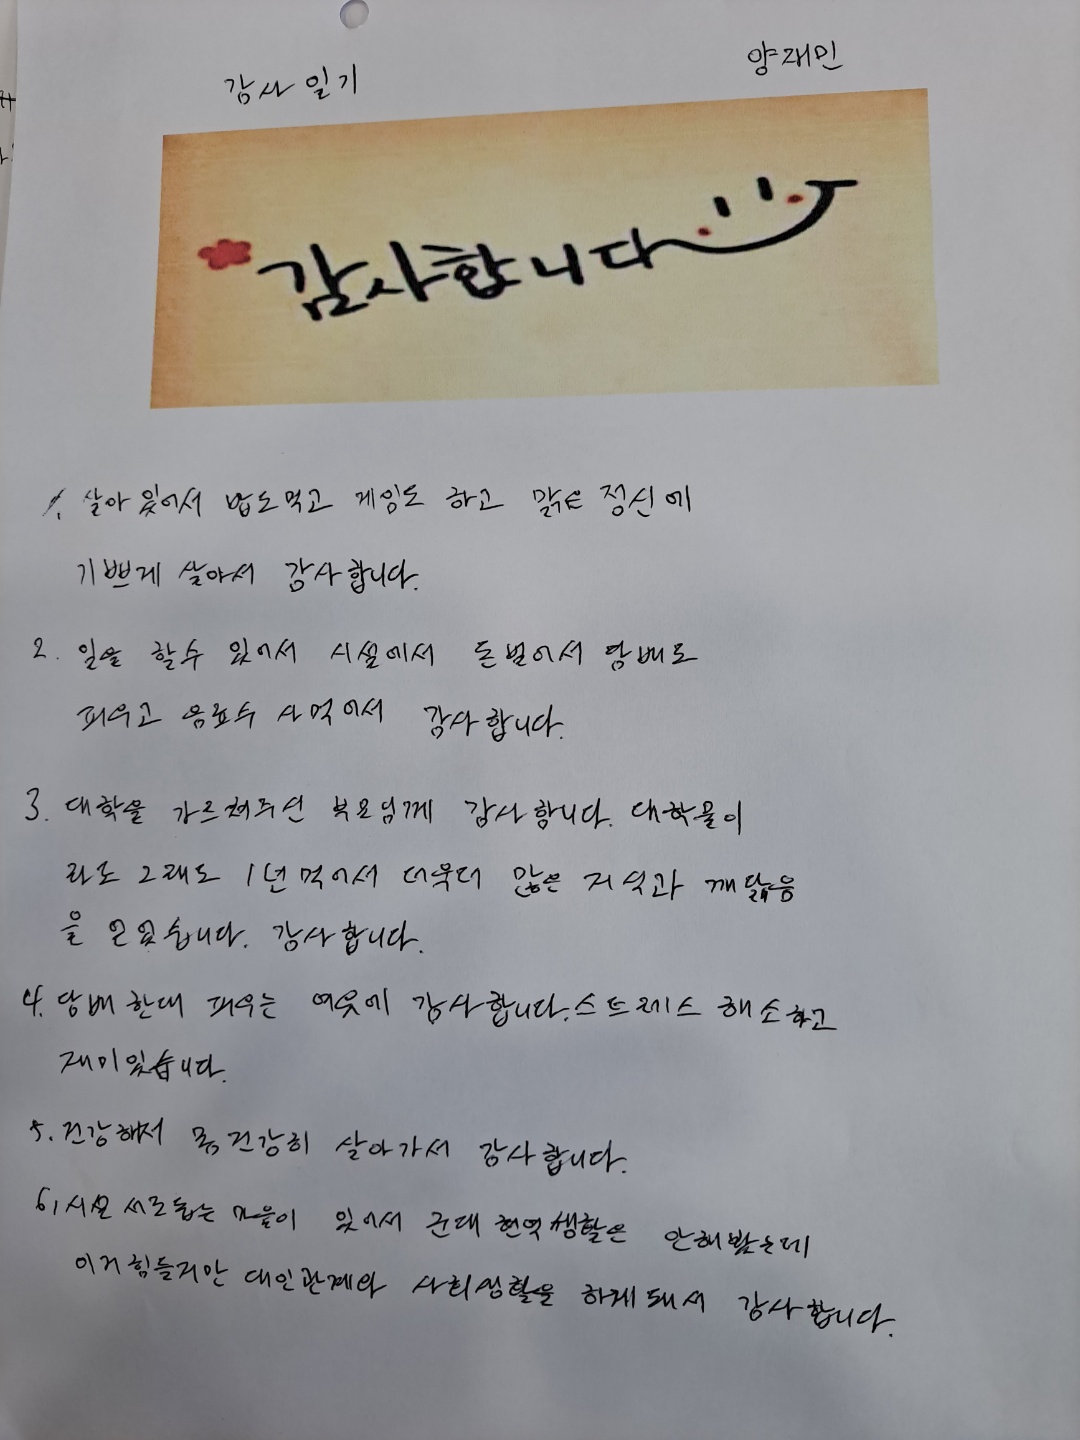 감사 일기
양재민
감사합니다
1. 살아 있어서 밥도먹고 게임도 하고 맑은 정신에
기쁘게 살아서 감사합니다.
2. 일을 할수 있어서 시설에서 돈벌어서 담배도
피우고 음료수 사먹어서 감사합니다.
3. 대학을 가르쳐주신 부모님께 감사합니다. 대학물이
라도 그래도 1년 먹어서 더욱더 많은 지식과 깨닮음
을 얻었습니다. 감사합니다.
4. 담배 한대 피우는 여유에 감사합니다. 스트레스 해소하고
재미있습니다.
5. 건강해저 몸건강히 살아가서 감사합니다.
6, 시설 서로돕는 마음이 있어서 군대 현역생활은 안해봤는데
이거 힘들지만 대인관계와 사회생활을 하게 돼서 감사합니다.